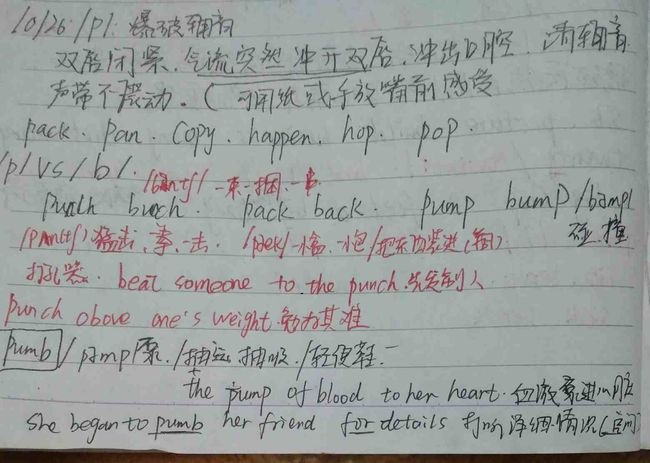 10/26 /p/ 爆破辅音
双唇闭紧, 气流突然冲开双唇, 冲出口腔, 清辅音
声带不震动. ( 可用纸或手放嘴前感受
pack. pan. copy. happen. hop. pop.
/p/ vs /b/. /bʌntʃ/ 一束 一捆
punch bunch. pack back. pump bump /bʌmp/
/pʌntʃ/ 猛击 /pæk/ 碰撞
打孔器. beat someone to the punch. 先发制人
punch above one's weight. 勉为其难
pumb /pʌmp/ 泵 / 抽吸 / 轻便鞋
the pump of blood to her heart. 血液泵进心脏
she began to pumb her friend for details 打听详细情况